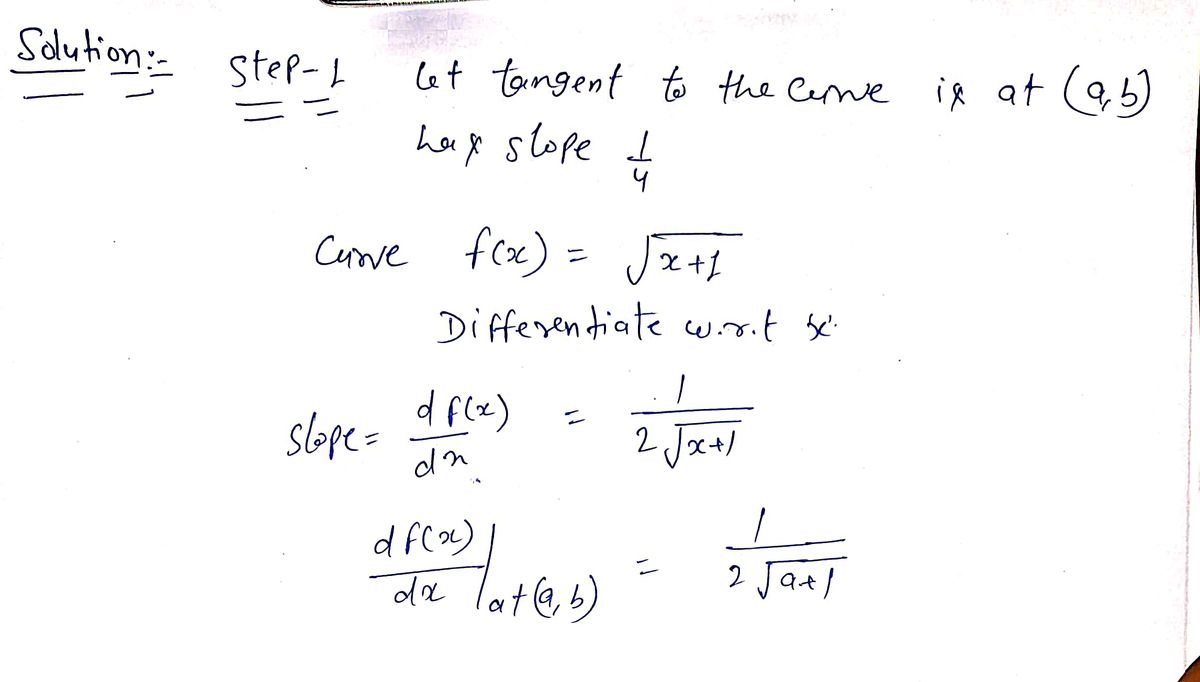 Solution:- Step-1 let tangent to the curve is at (a,b)
has slope 1/4
Curve f(x) = √(x+1)
Differentiate w.r.t 'x'.
slope = d f(x)/dx = 1/(2√(x+1))
d f(x)/dx | at (a, b) = 1/(2√(a+1))